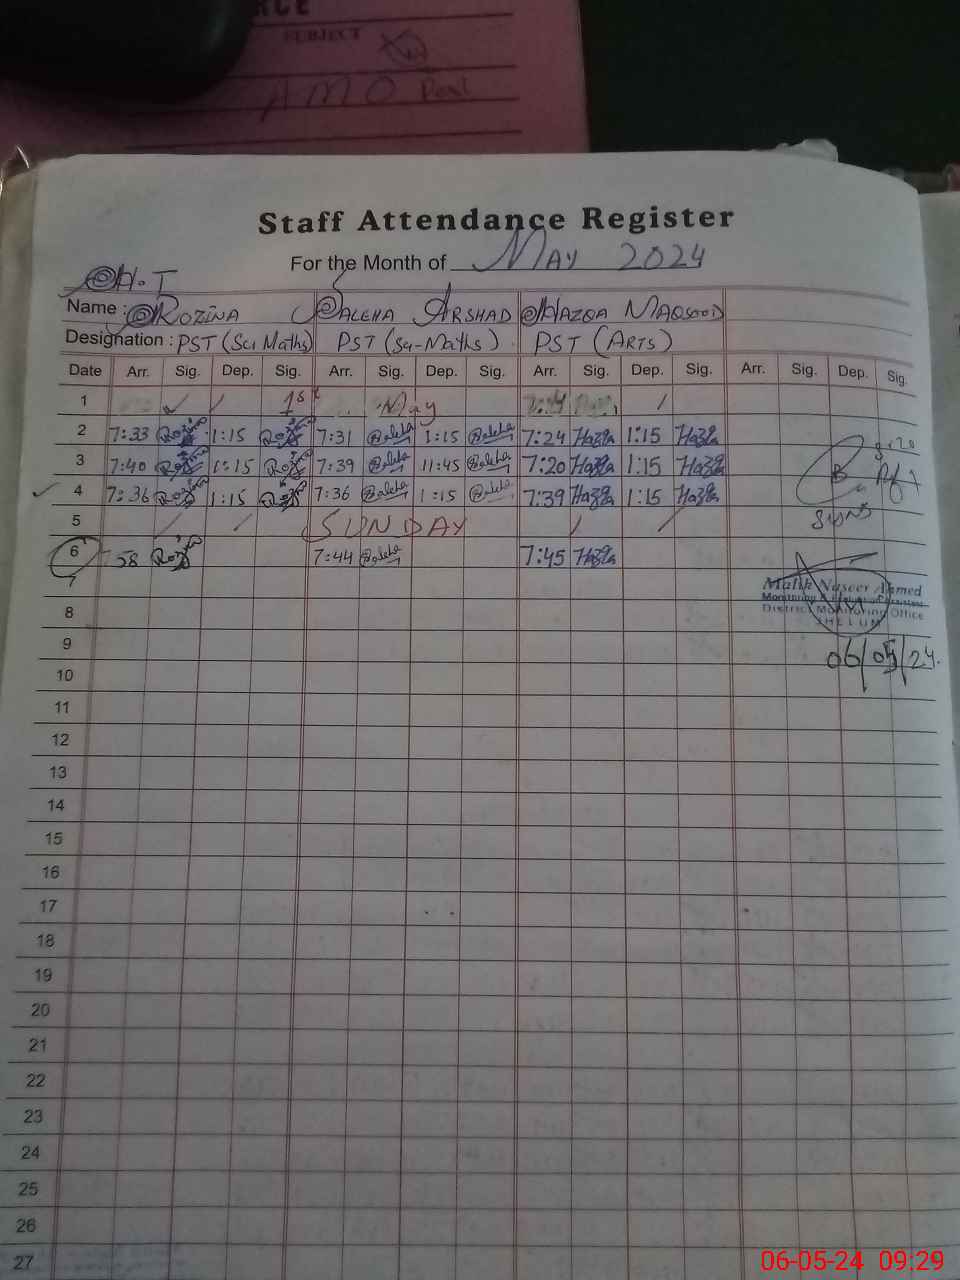 RCE
SUBJECT
AMO
Staff Attendance Register
For the Month of May 2024
H.T
Name : Rozina Saleha Arshad Hazqa Maqsood
Designation : PST (Sci Maths) PST (Sci-Maths) PST (Arts)
Date Arr. Sig. Dep. Sig. Arr. Sig. Dep. Sig. Arr. Sig. Dep. Sig. Arr. Sig. Dep. Sig.
1 1st May
2 7:33 Rozina 1:15 Rozina 7:31 Saleha 1:15 Saleha 7:24 Hazqa 1:15 Hazqa
3 7:40 Rozina 1:15 Rozina 7:39 Saleha 11:45 Saleha 7:20 Hazqa 1:15 Hazqa
4 7:36 Rozina 1:15 Rozina 7:36 Saleha 1:15 Saleha 7:39 Hazqa 1:15 Hazqa
5 SUNDAY
6 7:58 Rozina 7:44 Saleha 7:45 Hazqa
7
Malik Naseer Ahmed
Monitoring &
District Monitoring Office
JHELUM
8
9
06/05/24.
10
11
12
13
14
15
16
17
18
19
20
21
22
23
24
25
26
27
06-05-24 09:29